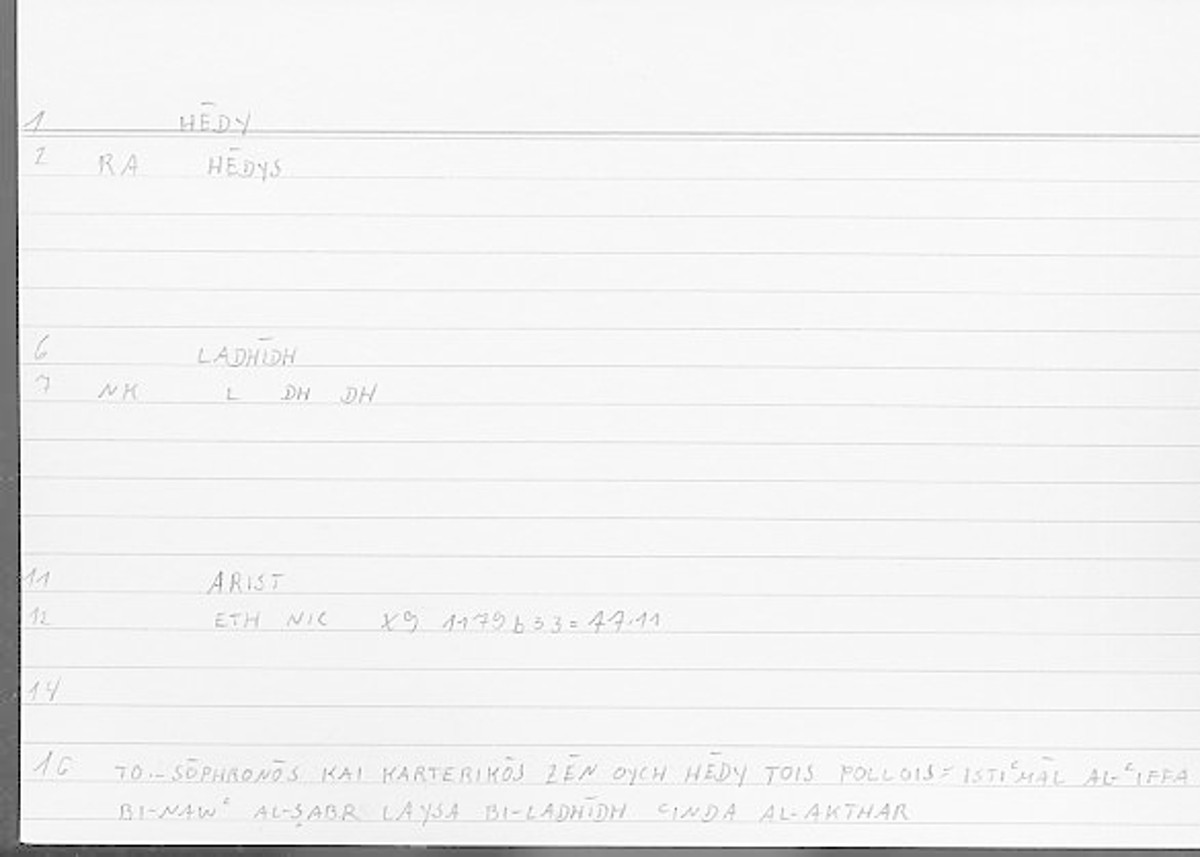 1 HĒDY
2 RA HĒDYS
6 LADHĪDH
7 NK L DH DH
11 ARIST
12 ETH NIC X9 1179 b 33 = 77.11
14
16 TO.-SŌPHRONŌS KAI KARTERIKŌS ZĒN OYCH HĒDY TOIS POLLOIS = ISTIᶜMĀL AL-ᶜIFFA
BI-NAWᶜ AL-ṢABR LAYSA BI-LADHĪDH ᶜINDA AL-AKTHAR